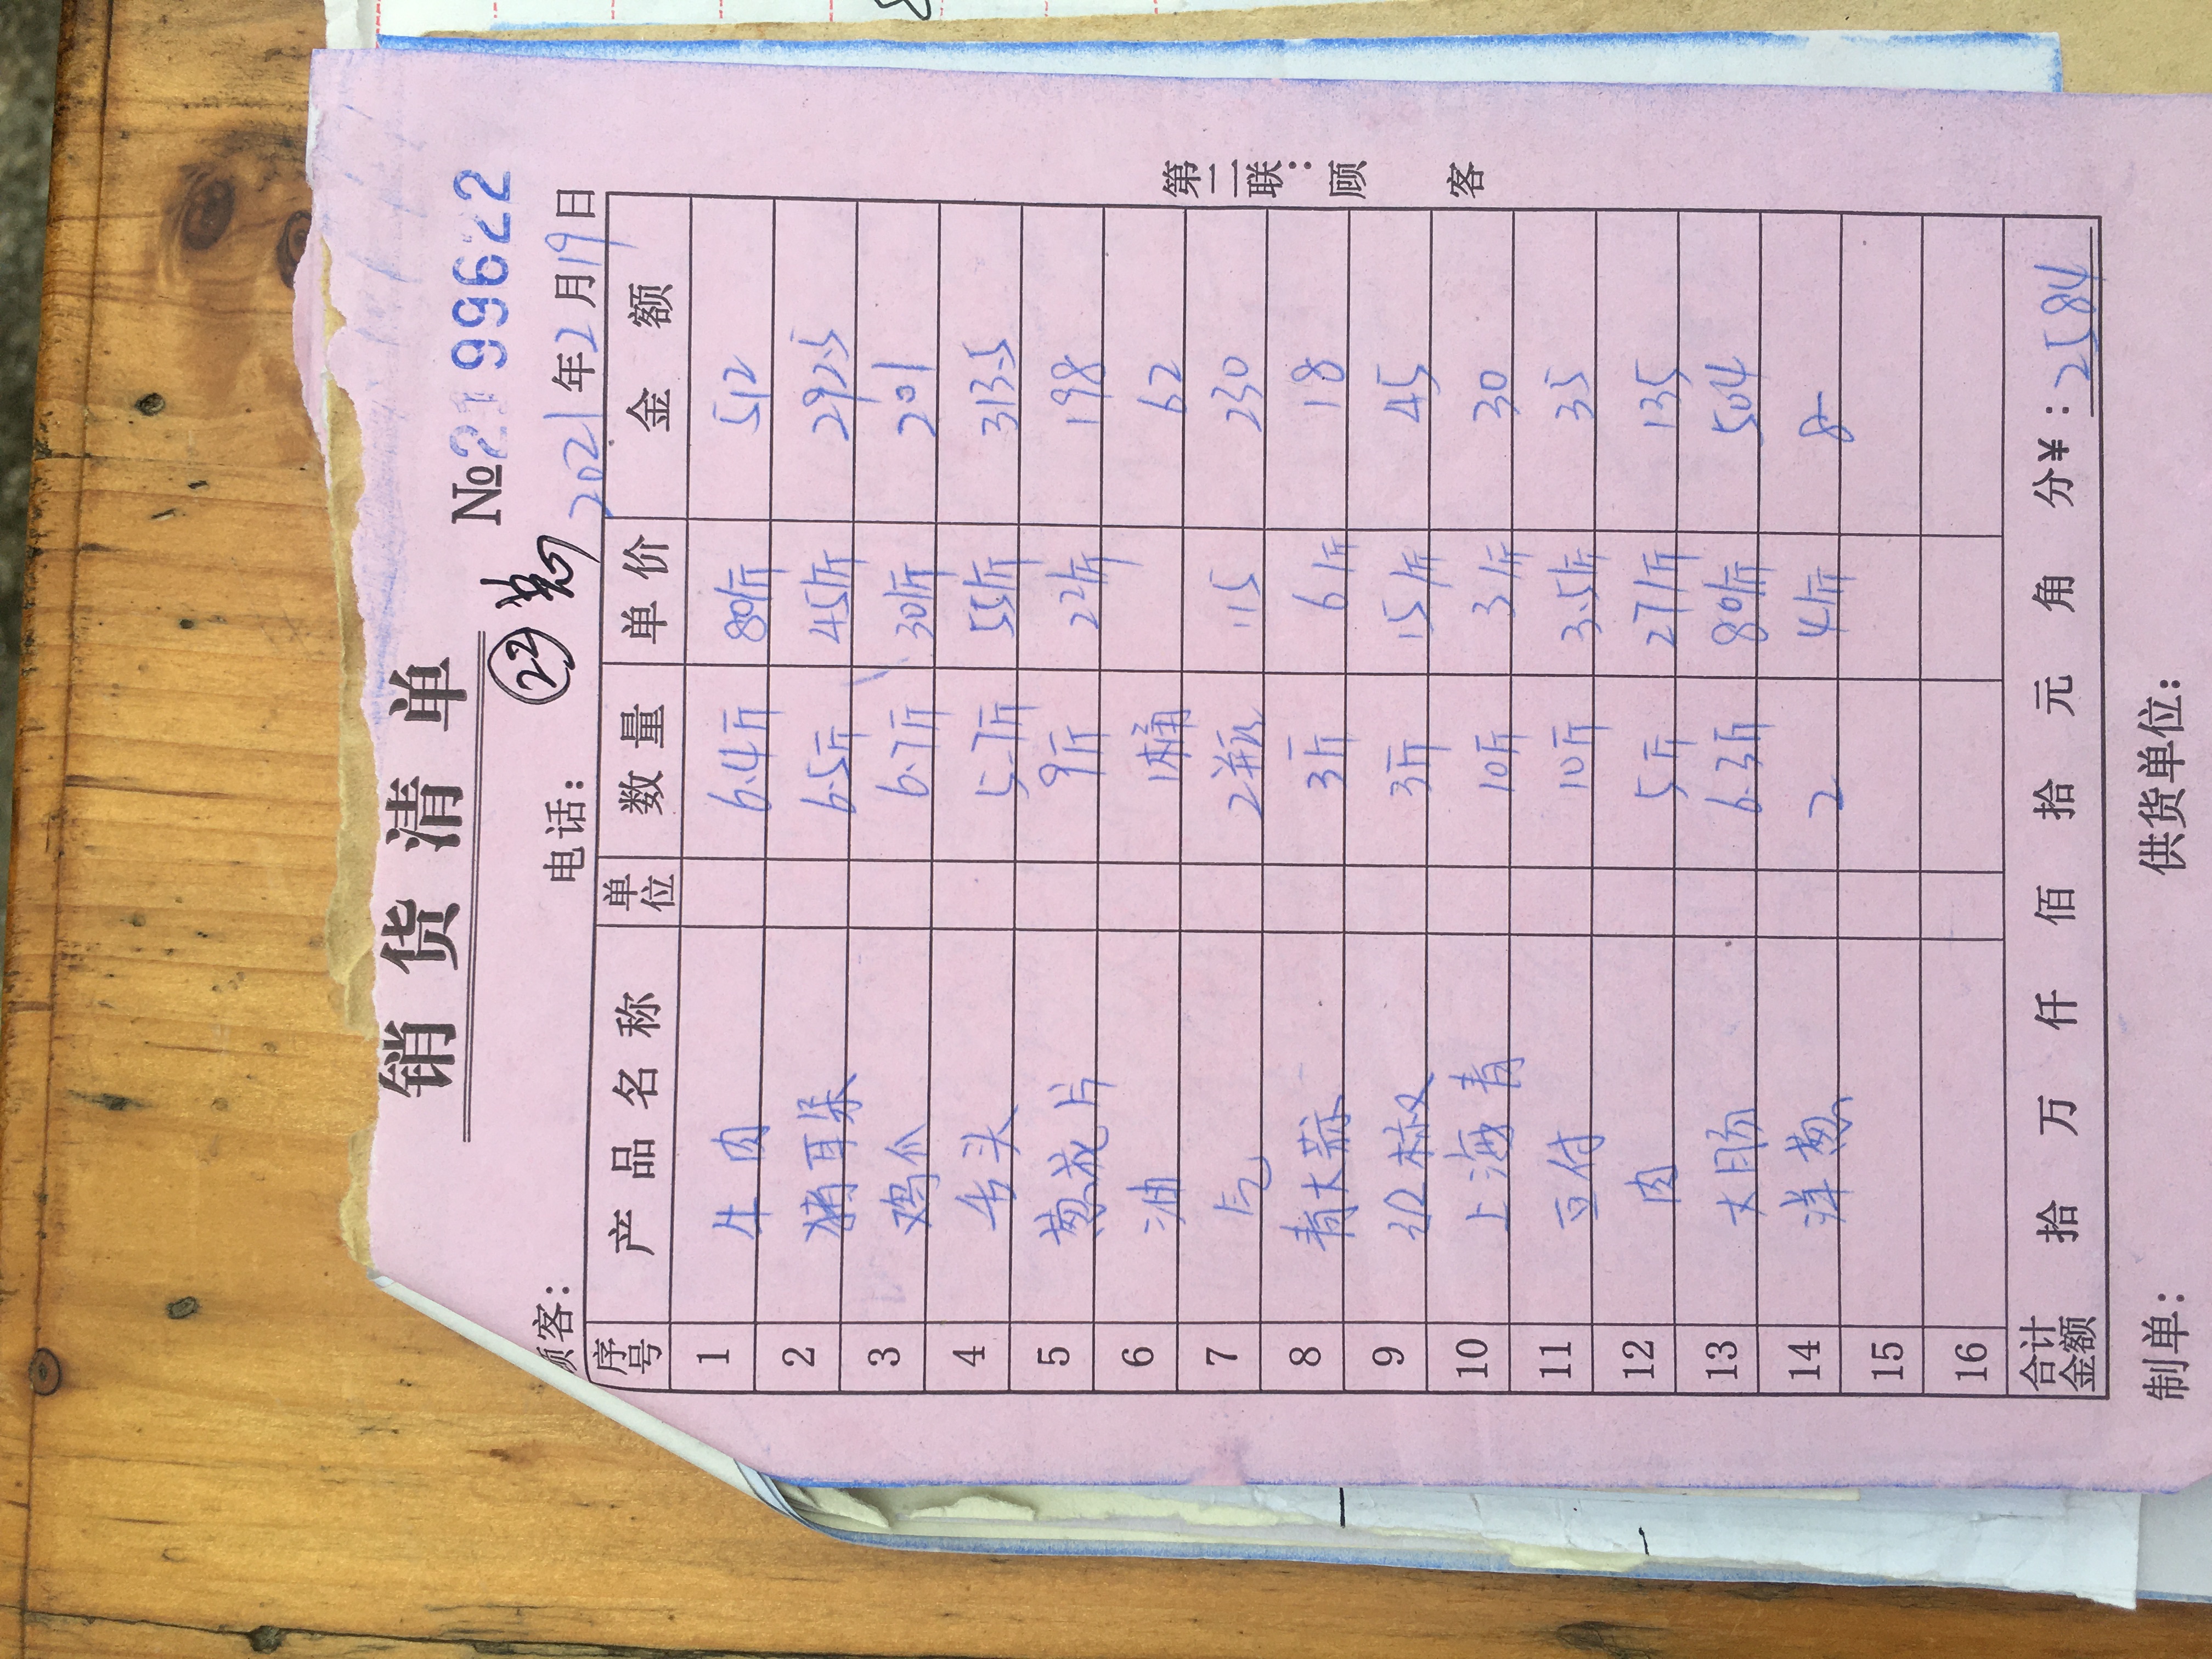 销货清单
№2199622
㉒ 总
顾客： 电话： 2021年2月19日
序号 产品名称 单位 数量 单价 金额
1 牛肉 6.4斤 80/斤 512
2 猪耳朵 6.5斤 45/斤 292.5
3 鸡爪 6.7斤 30/斤 201
4 舌头 5.7斤 55/斤 313.5
5 葱花片 9斤 22/斤 198
6 油 1桶 62
7 气 2瓶 115 230
8 青大蒜 3斤 6/斤 18
9 红椒 3斤 15/斤 45
10 上海青 10斤 3/斤 30
11 豆付 10斤 3.5/斤 35
12 肉 5斤 27/斤 135
13 大肠 6.3斤 80/斤 504
14 洋葱 2 4/斤 8
15
16
合计金额 拾 万 仟 佰 拾 元 角 分¥：2584
制单： 供货单位：
第二联：顾客